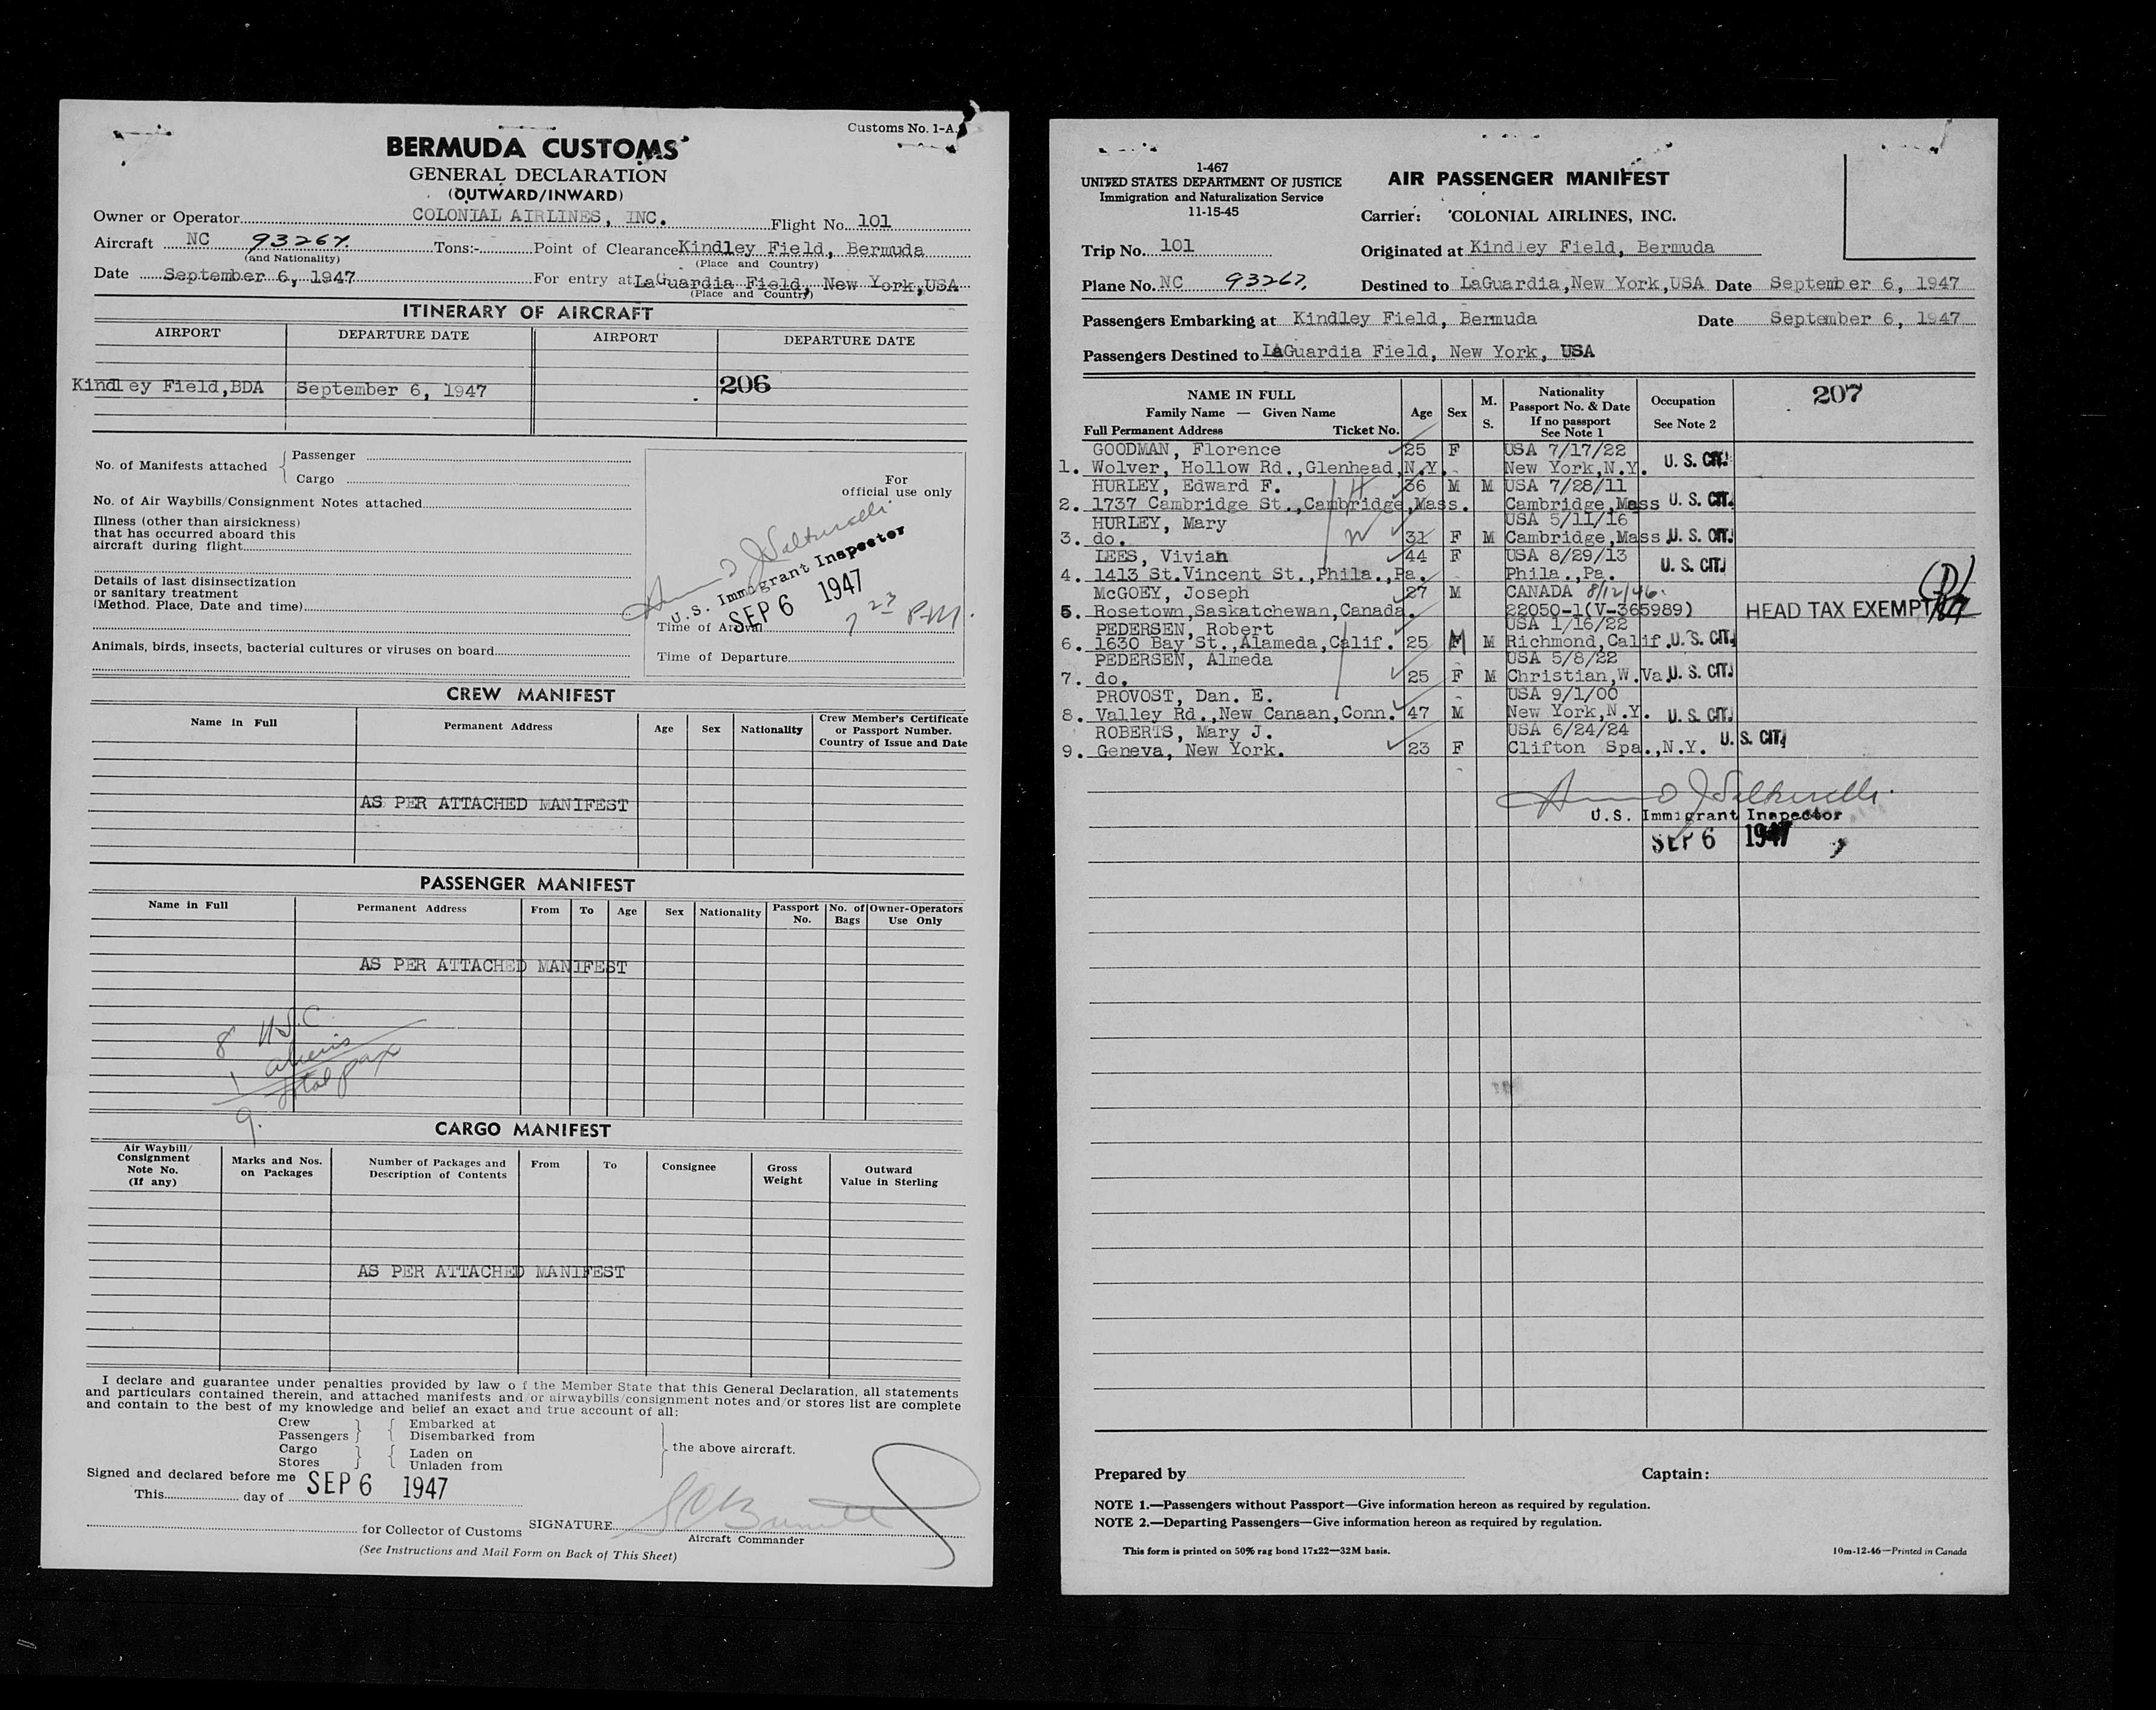 Customs No. 1-A.
BERMUDA CUSTOMS
GENERAL DECLARATION
(OUTWARD/INWARD)
Owner or Operator COLONIAL AIRLINES, INC. Flight No. 101
Aircraft NC 93267 Tons:- Point of Clearance Kindley Field, Bermuda
(and Nationality) (Place and Country)
Date September 6, 1947 For entry at LaGuardia Field, New York, USA
(Place and Country)
ITINERARY OF AIRCRAFT
AIRPORT DEPARTURE DATE AIRPORT DEPARTURE DATE
Kindley Field, BDA September 6, 1947 206
No. of Manifests attached { Passenger
Cargo
No. of Air Waybills/Consignment Notes attached
Illness (other than airsickness)
that has occurred aboard this
aircraft during flight
Details of last disinsectization
or sanitary treatment
(Method. Place, Date and time)
Animals, birds, insects, bacterial cultures or viruses on board
For
official use only
U.S. Immigrant Inspector
SEP 6 1947
Time of Arrival 7 23 P.M.
Time of Departure
CREW MANIFEST
Name in Full Permanent Address Age Sex Nationality Crew Member's Certificate or Passport Number. Country of Issue and Date
AS PER ATTACHED MANIFEST
PASSENGER MANIFEST
Name in Full Permanent Address From To Age Sex Nationality Passport No. No. of Bags Owner-Operators Use Only
AS PER ATTACHED MANIFEST
8 U.S.C.
1 aliens
9. total pax
CARGO MANIFEST
Air Waybill/ Consignment Note No. (If any) Marks and Nos. on Packages Number of Packages and Description of Contents From To Consignee Gross Weight Outward Value in Sterling
AS PER ATTACHED MANIFEST
I declare and guarantee under penalties provided by law o f the Member State that this General Declaration, all statements
and particulars contained therein, and attached manifests and/or airwaybills/consignment notes and/or stores list are complete
and contain to the best of my knowledge and belief an exact and true account of all:
Crew Embarked at
Passengers Disembarked from
Cargo Laden on the above aircraft.
Stores Unladen from
Signed and declared before me SEP 6 1947
This day of
for Collector of Customs SIGNATURE
Aircraft Commander
(See Instructions and Mail Form on Back of This Sheet)
1-467
UNITED STATES DEPARTMENT OF JUSTICE
Immigration and Naturalization Service
11-15-45
AIR PASSENGER MANIFEST
Carrier: COLONIAL AIRLINES, INC.
Trip No. 101 Originated at Kindley Field, Bermuda
Plane No. NC 93267 Destined to LaGuardia, New York, USA Date September 6, 1947
Passengers Embarking at Kindley Field, Bermuda Date September 6, 1947
Passengers Destined to LaGuardia Field, New York, USA
NAME IN FULL Family Name — Given Name Full Permanent Address Ticket No. Age Sex M. S. Nationality Passport No. & Date If no passport See Note 1 Occupation See Note 2 207
GOODMAN, Florence 25 F USA 7/17/22
1. Wolver, Hollow Rd., Glenhead, N.Y. New York, N.Y. U. S. CIT.
HURLEY, Edward F. 36 M M USA 7/28/11
2. 1737 Cambridge St., Cambridge, Mass. Cambridge, Mass U. S. CIT.
HURLEY, Mary USA 5/11/16
3. do. 31 F M Cambridge, Mass U. S. CIT.
LEES, Vivian 44 F USA 8/29/13
4. 1413 St. Vincent St., Phila., Pa. Phila., Pa. U. S. CIT.
McGOEY, Joseph 27 M CANADA 8/12/46.
5. Rosetown, Saskatchewan, Canada. 22050-1(V-365989) HEAD TAX EXEMPT
PEDERSEN, Robert USA 1/16/22
6. 1630 Bay St., Alameda, Calif. 25 M M Richmond, Calif. U. S. CIT.
PEDERSEN, Almeda USA 5/8/22
7. do. 25 F M Christian, W. Va U. S. CIT.
PROVOST, Dan. E. USA 9/1/00
8. Valley Rd., New Canaan, Conn. 47 M New York, N.Y. U. S. CIT.
ROBERTS, Mary J. USA 6/24/24
9. Geneva, New York. 23 F Clifton Spa., N.Y. U. S. CIT.
U.S. Immigrant Inspector
SEP 6 1947
Prepared by Captain:
NOTE 1.—Passengers without Passport—Give information hereon as required by regulation.
NOTE 2.—Departing Passengers—Give information hereon as required by regulation.
This form is printed on 50% rag bond 17x22—32M basis. 10m-12-46—Printed in Canada